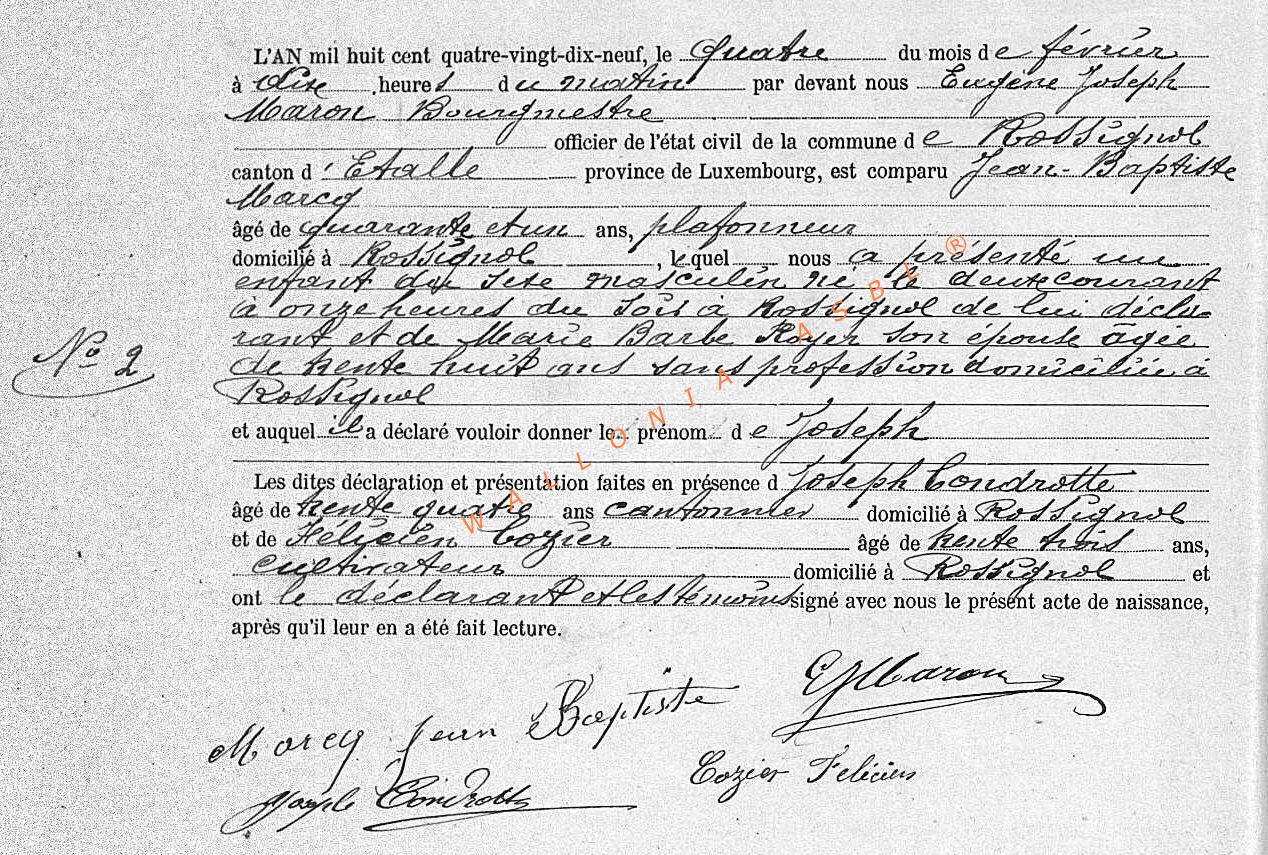 L'AN mil huit cent quatre-vingt-dix-neuf, le quatre du mois de février
à dix heures du matin par devant nous Eugène Joseph
Maron Bourgmestre
officier de l'état civil de la commune de Rossignol
canton d'Etalle province de Luxembourg, est comparu Jean-Baptiste
Marcq
âgé de quarante et un ans, plafonneur
domicilié à Rossignol, lequel nous a présenté un
enfant du sexe masculin né le deux courant
à onze heures du soir à Rossignol de lui décla-
rant et de Marie Barbe Royer son épouse âgée
No 2
de trente huit ans sans profession domiciliée à
Rossignol
et auquel il a déclaré vouloir donner le prénom de Joseph
Les dites déclaration et présentation faites en présence d Joseph Condrotte
âgé de trente quatre ans cantonnier domicilié à Rossignol
et de Félicien Cozier âgé de trente trois ans,
cultivateur domicilié à Rossignol et
ont le déclarant et les témoins signé avec nous le présent acte de naissance,
après qu'il leur en a été fait lecture.
WALLONIA ASBL ®
EJMaron
Marcq Jean Baptiste
Cozier Felicien
Joseph Condrotte